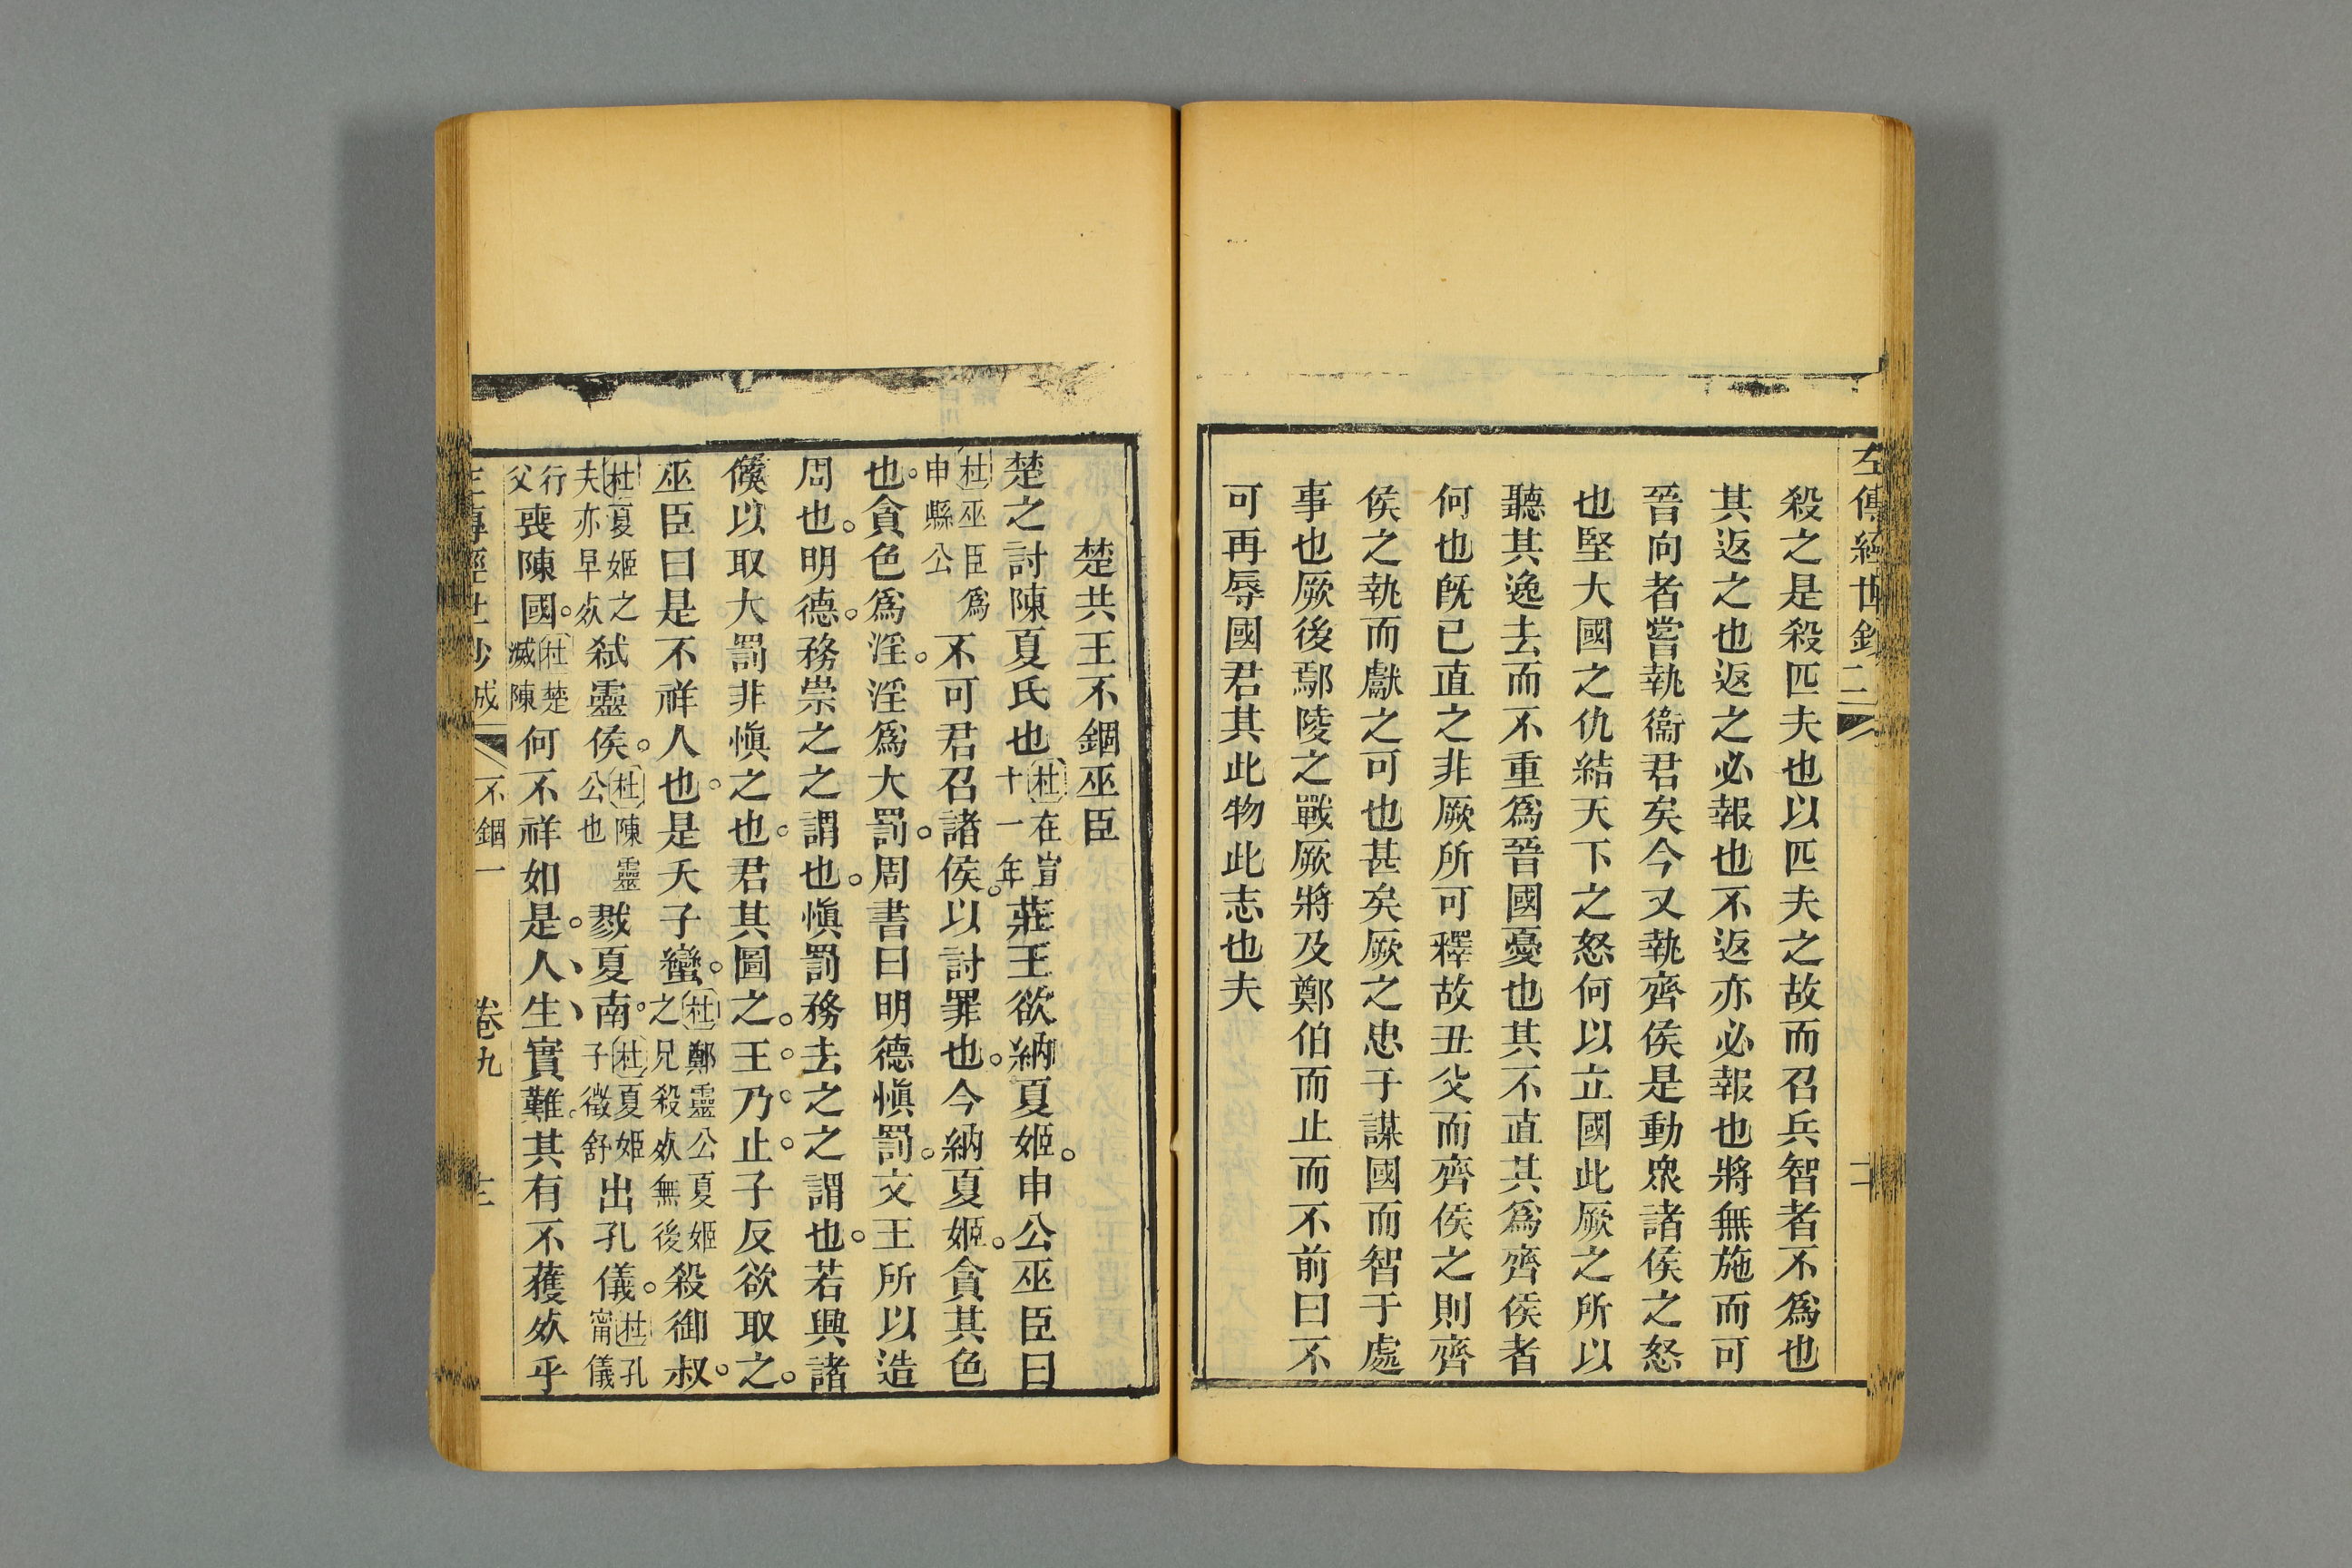 左傳經世鈔 二 二
殺之是殺匹夫也以匹夫之故而召兵智者不爲也
其返之也返之必報也不返亦必報也將無施而可
晉向者嘗執衞君矣今又執齊侯是動衆諸侯之怒
也堅大國之仇結天下之怒何以立國此厥之所以
聽其逸去而不重爲晉國憂也其不直其爲齊侯者
何也旣已直之非厥所可釋故丑父而齊侯之則齊
侯之執而獻之可也甚矣厥之忠于謀國而智于處
事也厥後鄢陵之戰厥將及鄭伯而止而不前曰不
可再辱國君其此物此志也夫
楚共王不錮巫臣
楚之討陳夏氏也杜在宣十一年莊王欲納夏姬。申公巫臣曰
杜巫臣爲申縣公不可君召諸侯。以討罪也。今納夏姬。貪其色
也。貪色爲淫。淫爲大罰。周書曰明德愼罰。文王所以造
周也。明德。務崇之之謂也。愼罰務去之之謂也。若興諸
侯以取大罰非愼之也。君其圖之。王。乃。止。子反欲取之。
巫臣曰是不祥人也。是夭子蠻。杜鄭靈公夏姬之兄殺死無後殺御叔。
杜夏姬之夫亦早死弑靈侯。杜陳靈公也戮夏南。杜夏姬子徵舒出孔儀。杜孔甯儀
行父喪陳國。杜楚滅陳何不祥如是。人、生、實難。其有不獲死乎
左傳經世鈔 成 不錮一 卷九 三